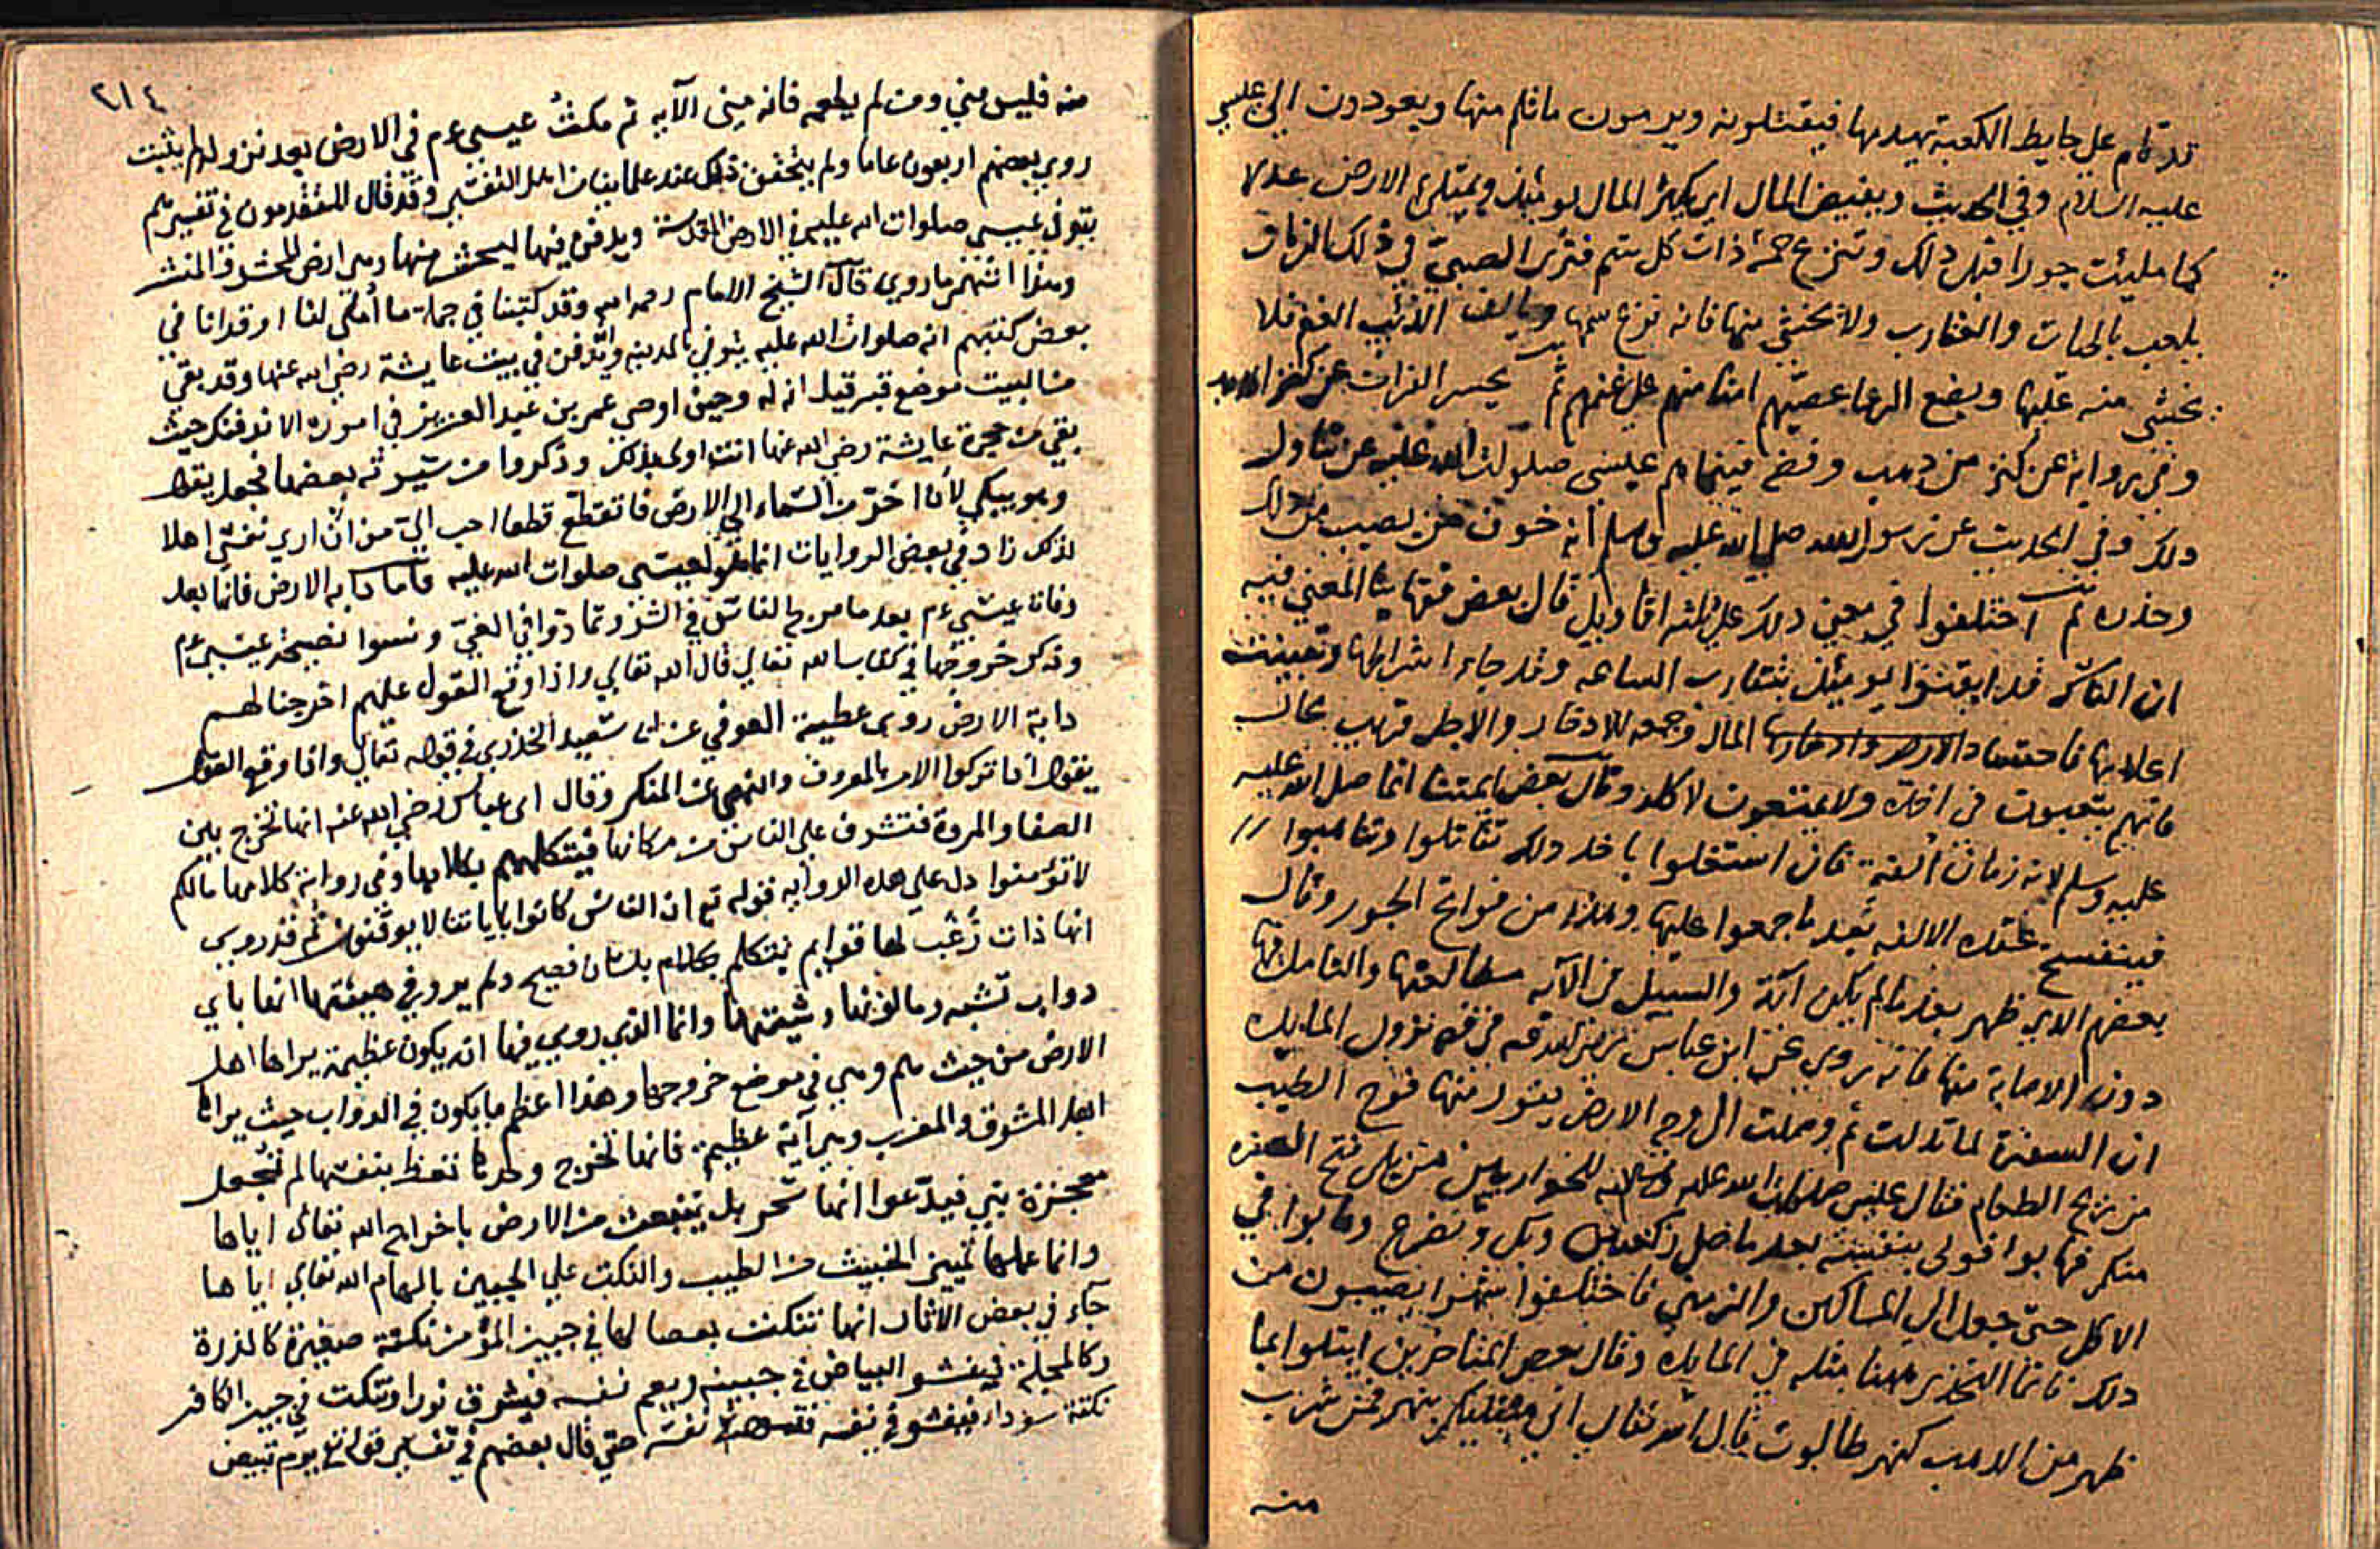 قد قام على حايط الكعبة يهدمها فيقتلونه ويرمون ما ثلم منها ويعودون الى عيسى
عليه السلام وفي الحديث ويفيض المال اي يكثر المال يومئذ ويمتلئ الارض عدلا
كما ملئت جورا قبل ذلك وتنزع حمة ذات كل سم فترى الصبي في ذلك الزمان
يلعب بالحيات والعقارب ولا يخشى منها فانه نزع سمها ويالف الذئب الغنم فلا
يخشى منه عليها ويضع الرعا عصيهم امنا منهم على غنمهم ثم يحسر الفرات عن كنز
وفي رواية عن كنز من ذهب وفضة فينهاهم عيسى صلوات الله عليه عن تناول
ذلك وفي الحديث عن رسول الله صلى الله عليه وسلم انه خون من يصيب من ذلك
وحذره ثم اختلفوا في معنى ذلك على ثلثه اقاويل قال بعض فقهائنا المعنى فيه
ان الناس قد ايقنوا يومئذ بتقارب الساعه وقد جاء اشراطها وتعينت
اعلامها فاحتشاد المال وجمعه للادخار والاجل قريب محال
فانهم يتعبون في اخذه ولا يمتنعون لاكله وقال بعض ايمتنا انما صلى الله عليه
عليه وسلم لانه زمان الفة فان اشتغلوا باخذ ذلك تقاتلوا وتناهبوا
فينفسخ عقده الالفه بعد ما جمعوا عليها وهذا من فواتح الجور وقال
بعضهم الذي ظهر بعد ما لم يكن آية والسبيل في الآيه مطالعتها والتامل فيها
دون الاصابة منها فانه يروى عن ابن عباس رضي الله عنه في نزول المايده
ان السفرة لما تدلت ثم وصلت الى وجه الارض يفور منها فوح الطيب
من ريح الطعام فقال عيسى صلوات الله عليه وسلامه للحواريين من يلي فتح السفره
منكم فهابوا فولى بنفسه بعد ما صلى ركعتين وبكى وتضرع وهابوا في
الاكل حتى جعل الى المساكين والزمنى فاختلفوا يصيبون من
ذلك فاتما التحذير ههنا مثله في المايده وقال بعض المتاخرين ابتلوا بما
ظهر من الذهب كنهر طالوت قال الله تعالى ان الله مبتليكم بنهر فمن شرب
منه
٢١٤
منه فليس مني ومن لم يطعمه فانه مني الآيه ثم مكث عيسى عم في الارض بعد نزوله لم يثبت
روى بعضهم اربعون عاما ولم يتحقق ذلك عند علمائنا من اهل التفسير وقد قال المتقدمون في تفسيرهم
يتوفى عيسى صلوات الله عليه في الارض المقدسة ويدفن فيها ليحشر منها وهي ارض المحشر والمنشر
وهذا اشهر ما روي قال الشيخ الامام رحمه الله وقد كتبنا في جملة ما أملى لنا او قرانا في
بعض كتبهم انه صلوات الله عليه يتوفى بالمدينه ويدفن في بيت عايشة رضي الله عنها وقد بقي
من البيت موضع قبر قيل انه له وحين اوصى عمر بن عبد العزيز في اموره الا ندفنك حيث
بقي من حجرة عايشة رضي الله عنها انت اولى بذلك وذكروا من سيرته بعضها فجعل يقول
وهو يبكي لأن اخر من السماء الى الارض فاتقطع قطعا احب الي من أن ارى نفسي اهلا
لذلك زاد في بعض الروايات انما هو لعيسى صلوات الله عليه فاما دابة الارض فانما بعد
وفاة عيسى عم بعد ما مرج الناس في الشر وتمادوا في الغي ونسوا نصيحة عيسى عم
وذكر خروجها في كتاب الله تعالى قال الله تعالى واذا وقع القول عليهم اخرجنا لهم
دابة الارض روى عطية العوفي عن ابي سعيد الخدري في قوله تعالى واذا وقع القول
يقول اذا تركوا الامر بالمعروف والنهي عن المنكر وقال ابن عباس رضي الله عنه انها تخرج بين
الصفا والمروة فتشرف على الناس من مكانها فيتكلمهم بكلامها وفي رواية كلامها مالكم
لا تؤمنوا دل على هذه الروايه قوله تع ان الناس كانوا باياتنا لا يوقنون ثم قد روي
انها ذات زغب لها قوايم تتكلم بكلام بلسان فصيح ولم يرو في هيئتها انها باي
دواب تشبه وما لونها وشيتها وانما الذي روي فيها انه يكون عظيمة يراها اهل
الارض من حيث هم وهي في موضع خروجها وهذا اعظم ما يكون في الدواب حيث يراها
اهل المشرق والمغرب وهي آية عظيمة فانها تخرج وحدها تعظ بنفسها لم تجعل
معجزة نبي فيدعوا انها سحر بل ينبعث من الارض باخراج الله تعالى اياها
وانما عملها تمييز الخبيث من الطيب والنكت على الجبين بالهام الله تعالى اياها
جاء في بعض الاثار انها تنكت بعصا لها في جبين المؤمن نكتة صغيرة كالذرة
فيفشو البياض في جبينه ويعم نفسه فيشرق نورا وتنكت في جبين الكافر
نكتة سوداء فيفشو في نفسه نفسه حتى قال بعضهم في تفسير قوله تع يوم تبيض